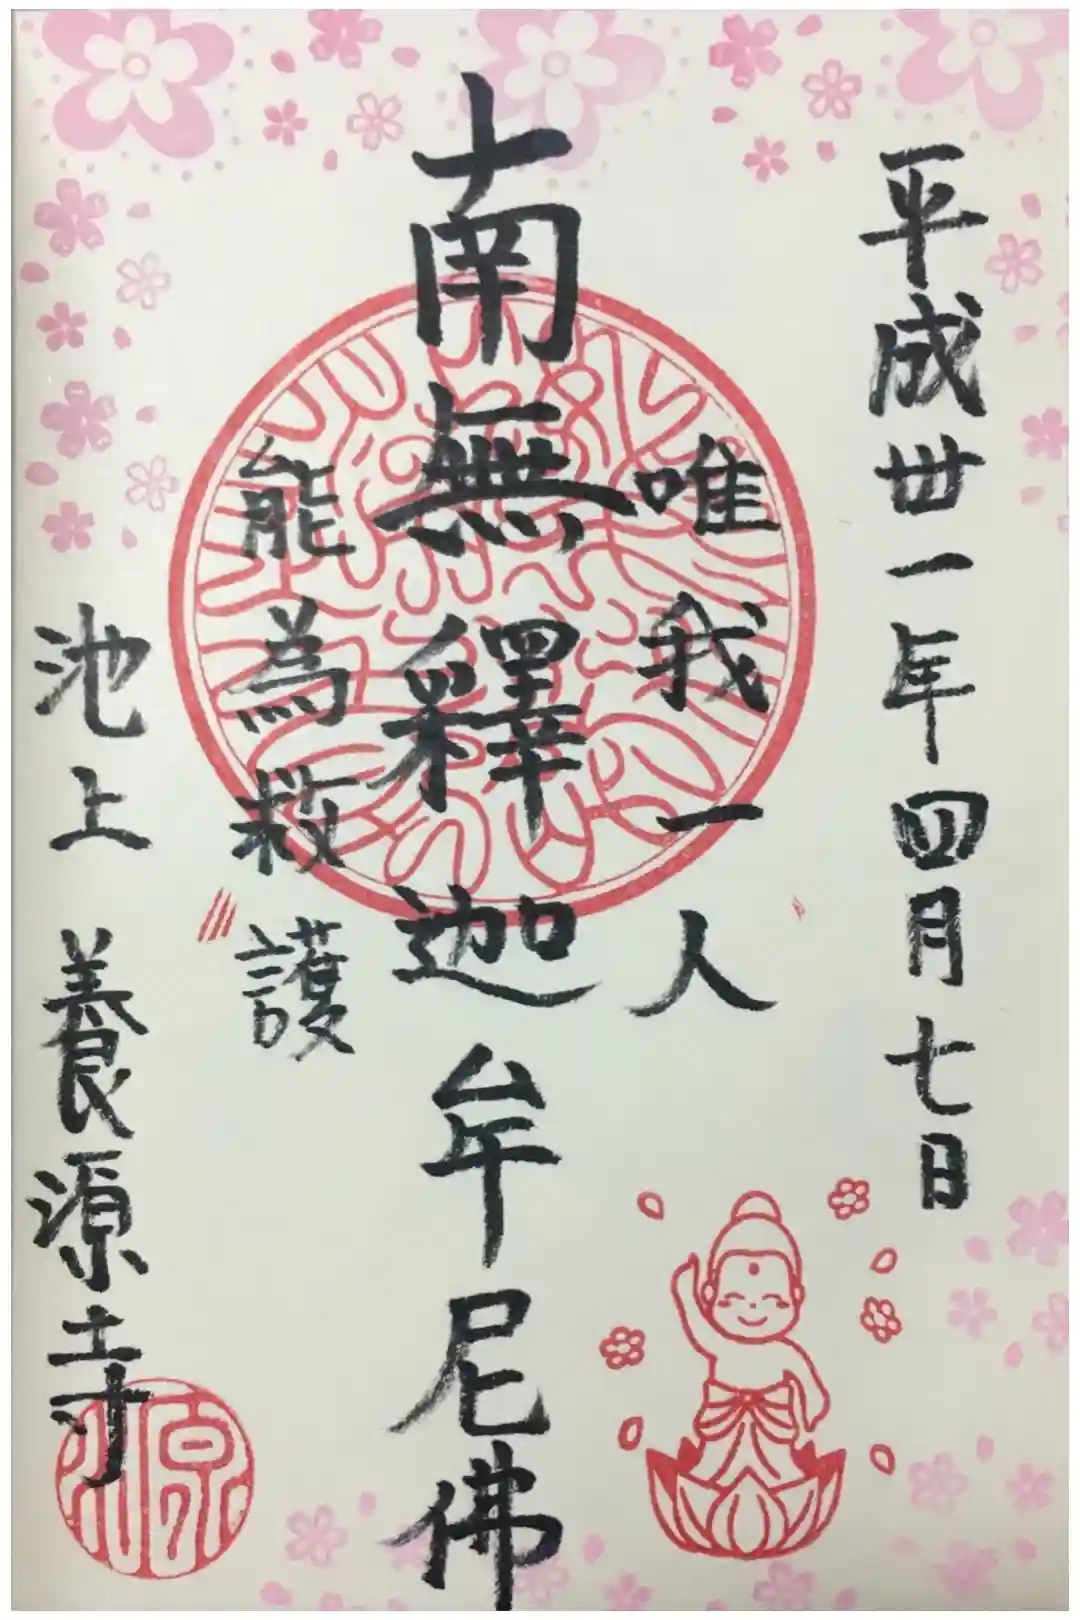 平成丗一年四月七日
唯我一人
南無釋迦牟尼佛
能為救護
池上 養源寺
源